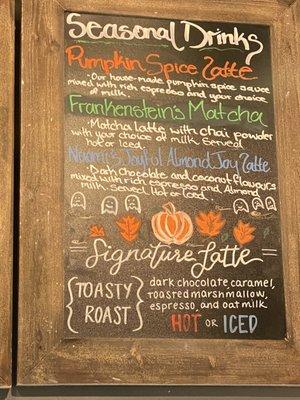 Seasonal Drinks
Pumpkin Spice Latte
• Our house-made pumpkin spice sauce
mixed with rich espresso and your choice
of milk.
Frankenstein's Matcha
• Matcha latte with chai powder
with your choice of milk. Served
hot or iced
Joyful Almond Joy Latte
• Dark chocolate and coconut flavours
mixed with rich espresso and Almond
milk. Served Hot or Iced.
Signature Latte
TOASTY
ROAST
dark chocolate, caramel,
roasted marshmallow,
espresso, and oat milk.
HOT or ICED